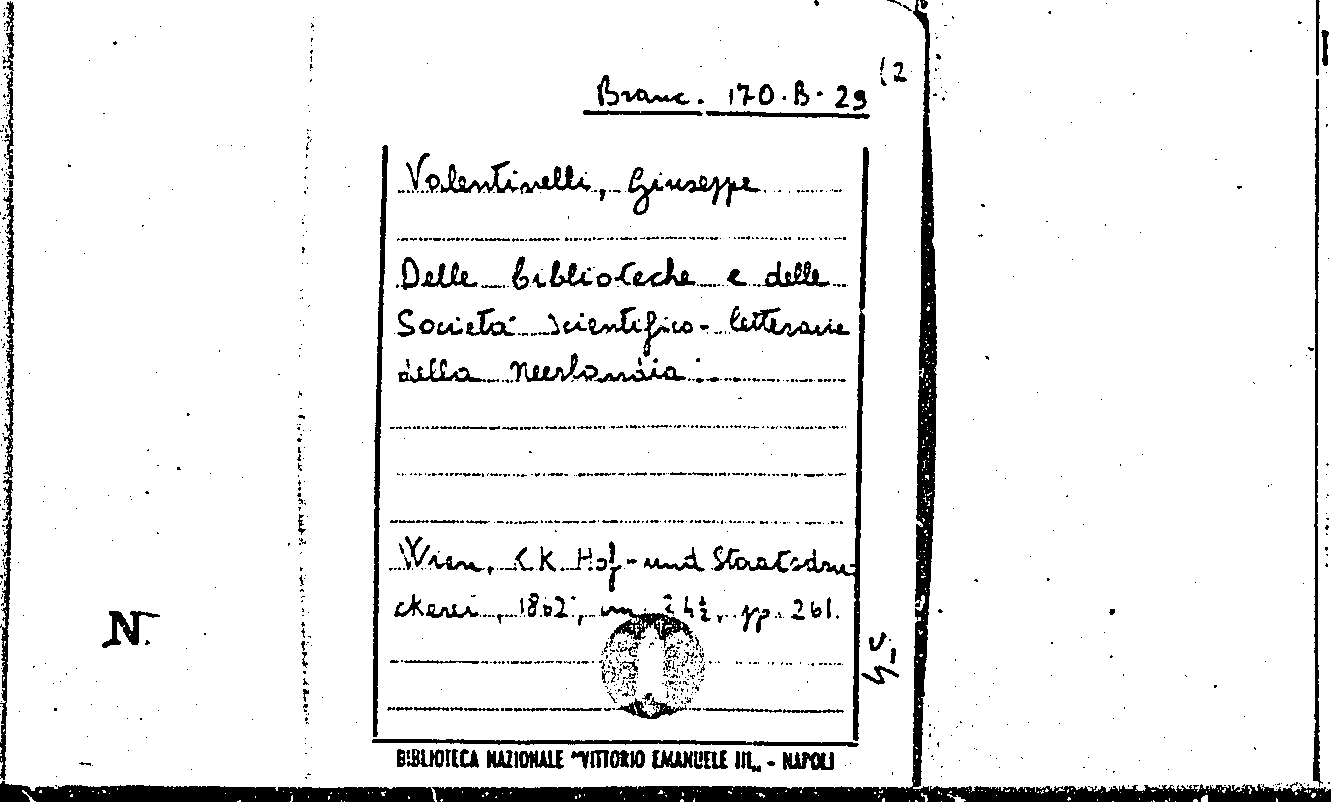 (2
Branc. 170.B.29
Valentinelli, Giuseppe
Delle biblioteche e delle
Società scientifico-letterarie
della Neerlandia.
Wien, I.K. Hof-und Staatsdru-
ckerei, 1862, in 24½, pp. 261.
N.
BIBLIOTECA NAZIONALE "VITTORIO EMANUELE III„ - NAPOLI